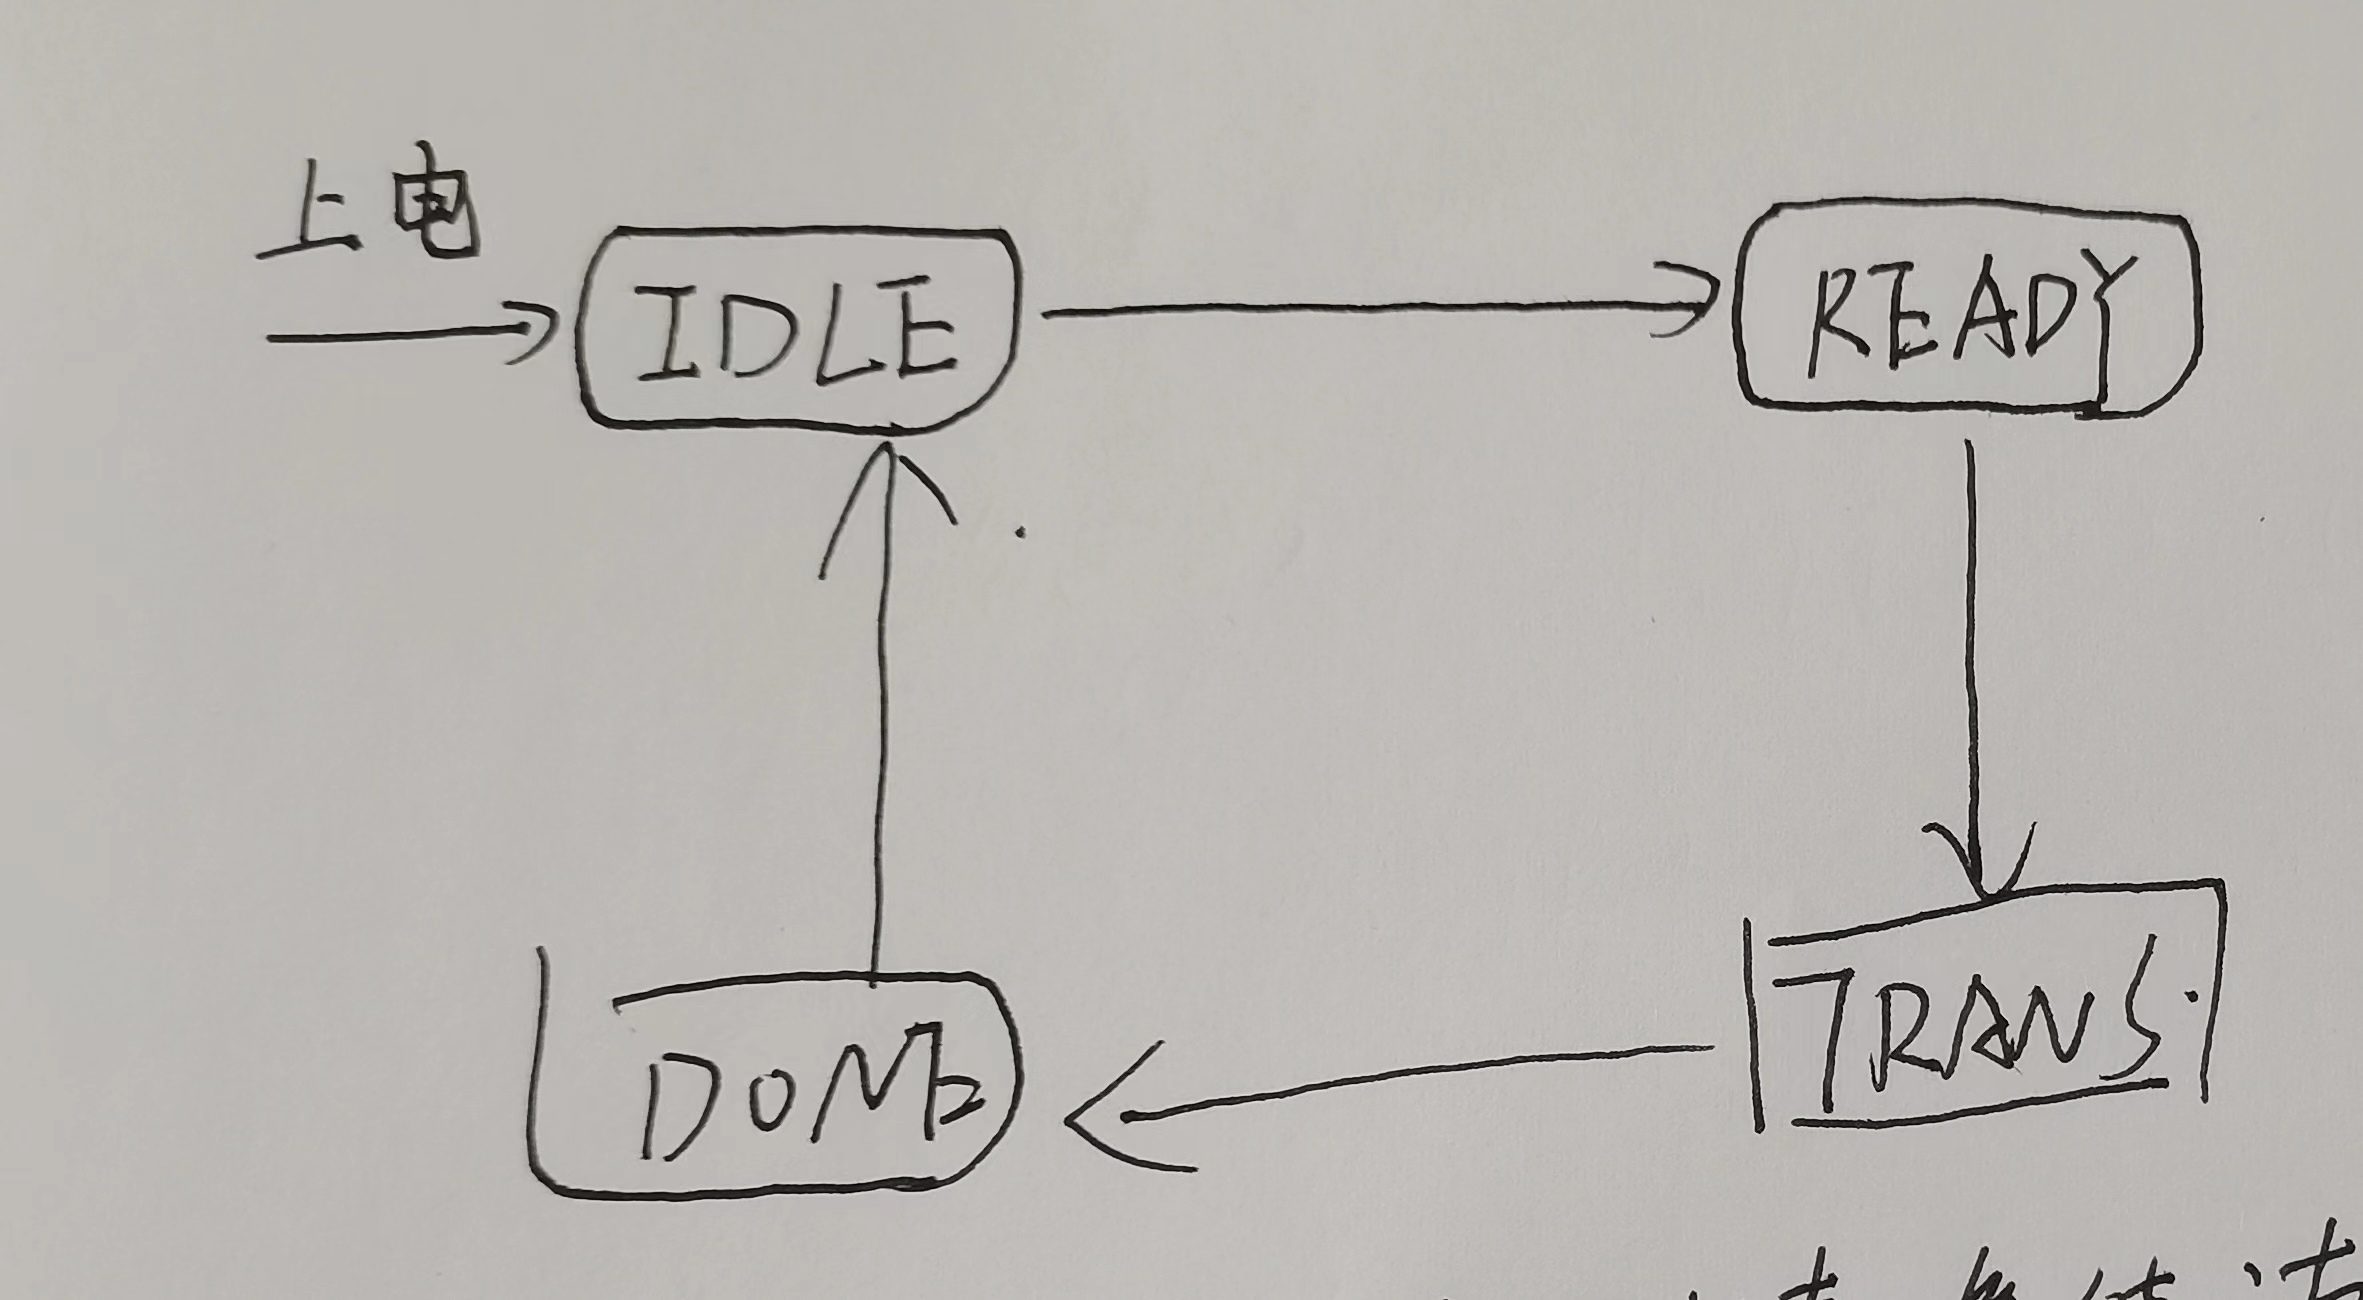 上电
IDLE
READY
TRANS
DONE